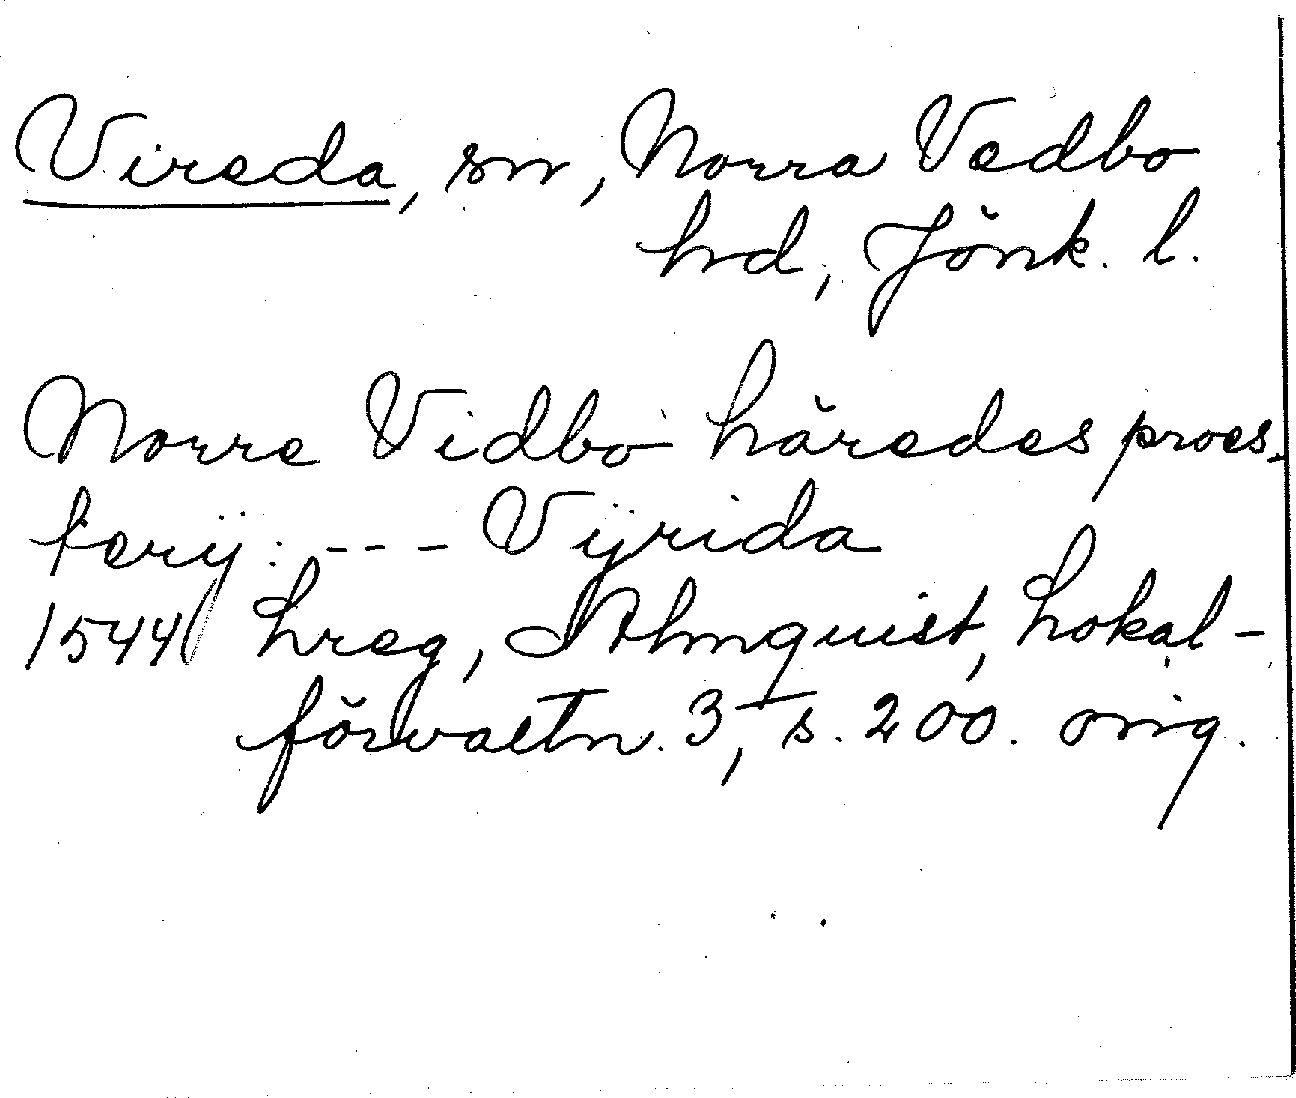 Vireda, sn, Norra Vedbo
hd, Jönk. l.
Norre Vidbo häredes proes-
terij: --- Vÿrida
1544 hreg, Almquist, Lokal-
förvaltn. 3, s. 200. orig.